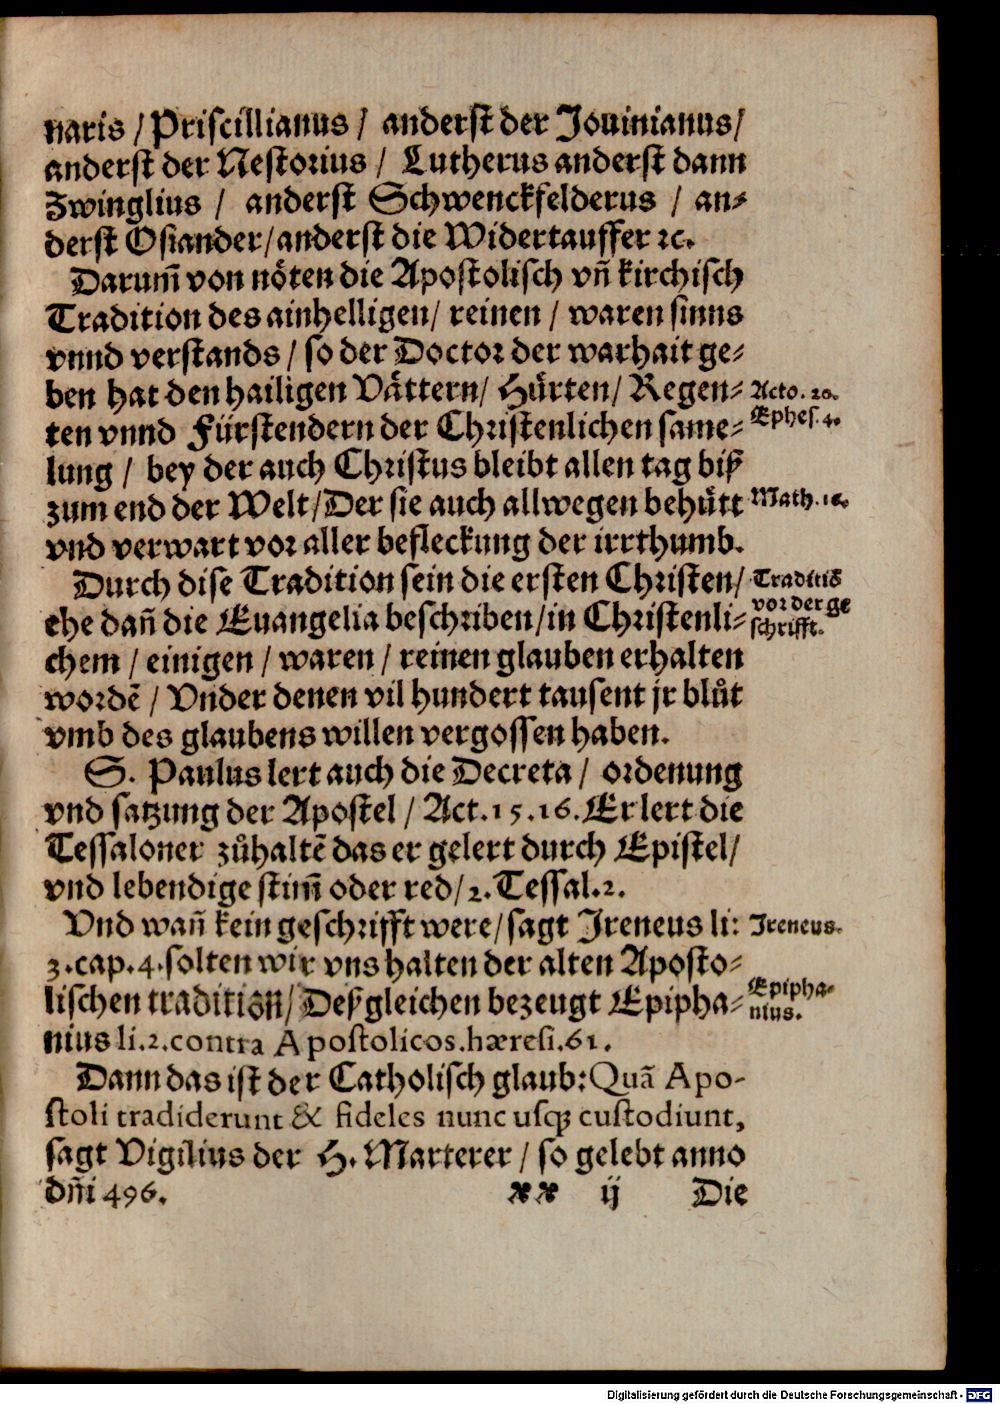 naris / Priscillianus / anderst der Jouinianus /
anderst der Nestorius / Lutherus anderst dann
Zwinglius / anderst Schwenckfelderus / an-
derst Osiander / anderst die Widertauffer ꝛc.
Darum̃ von nöten die Apostolisch vñ kirchisch
Tradition des ainhelligen / reinen / waren sinns
vnnd verstands / so der Doctor der warhait ge-
ben hat den hailigen Vättern / Hürten / Regen-
Acto. 20.
ten vnnd Fürstendern der Christenlichen same-
Ephes. 4.
lung / bey der auch Christus bleibt allen tag biß
zum end der Welt / Der sie auch allwegen behütt
Math. 16.
vnd verwart vor aller befleckung der irrthumb.
Durch dise Tradition sein die ersten Christen /
Traditiõ
vor der ge
schrifft.
ehe dañ die Euangelia beschriben / in Christenli-
chem / einigen / waren / reinen glauben erhalten
wordẽ / Vnder denen vil hundert tausent jr blůt
vmb des glaubens willen vergossen haben.
S. Paulus lert auch die Decreta / ordenung
vnd satzung der Apostel / Act. 15. 16. Er lert die
Tessaloner zůhaltẽ das er gelert durch Epistel /
vnd lebendige stim̃ oder red / 2. Tessal. 2.
Vnd wañ kein geschrifft were / sagt Ireneus li:
Ireneus.
3. cap. 4. solten wir vns halten der alten Aposto-
lischen tradition / Deßgleichen bezeugt Epipha-
Epipha-
nius.
nius li. 2. contra Apostolicos. hæresi. 61.
Dann das ist der Catholisch glaub: Quã Apo-
stoli tradiderunt & fideles nunc usqꝫ custodiunt,
sagt Vigilius der H. Marterer / so gelebt anno
dñi 496.
xx ij Die
Digitalisierung gefördert durch die Deutsche Forschungsgemeinschaft - DFG